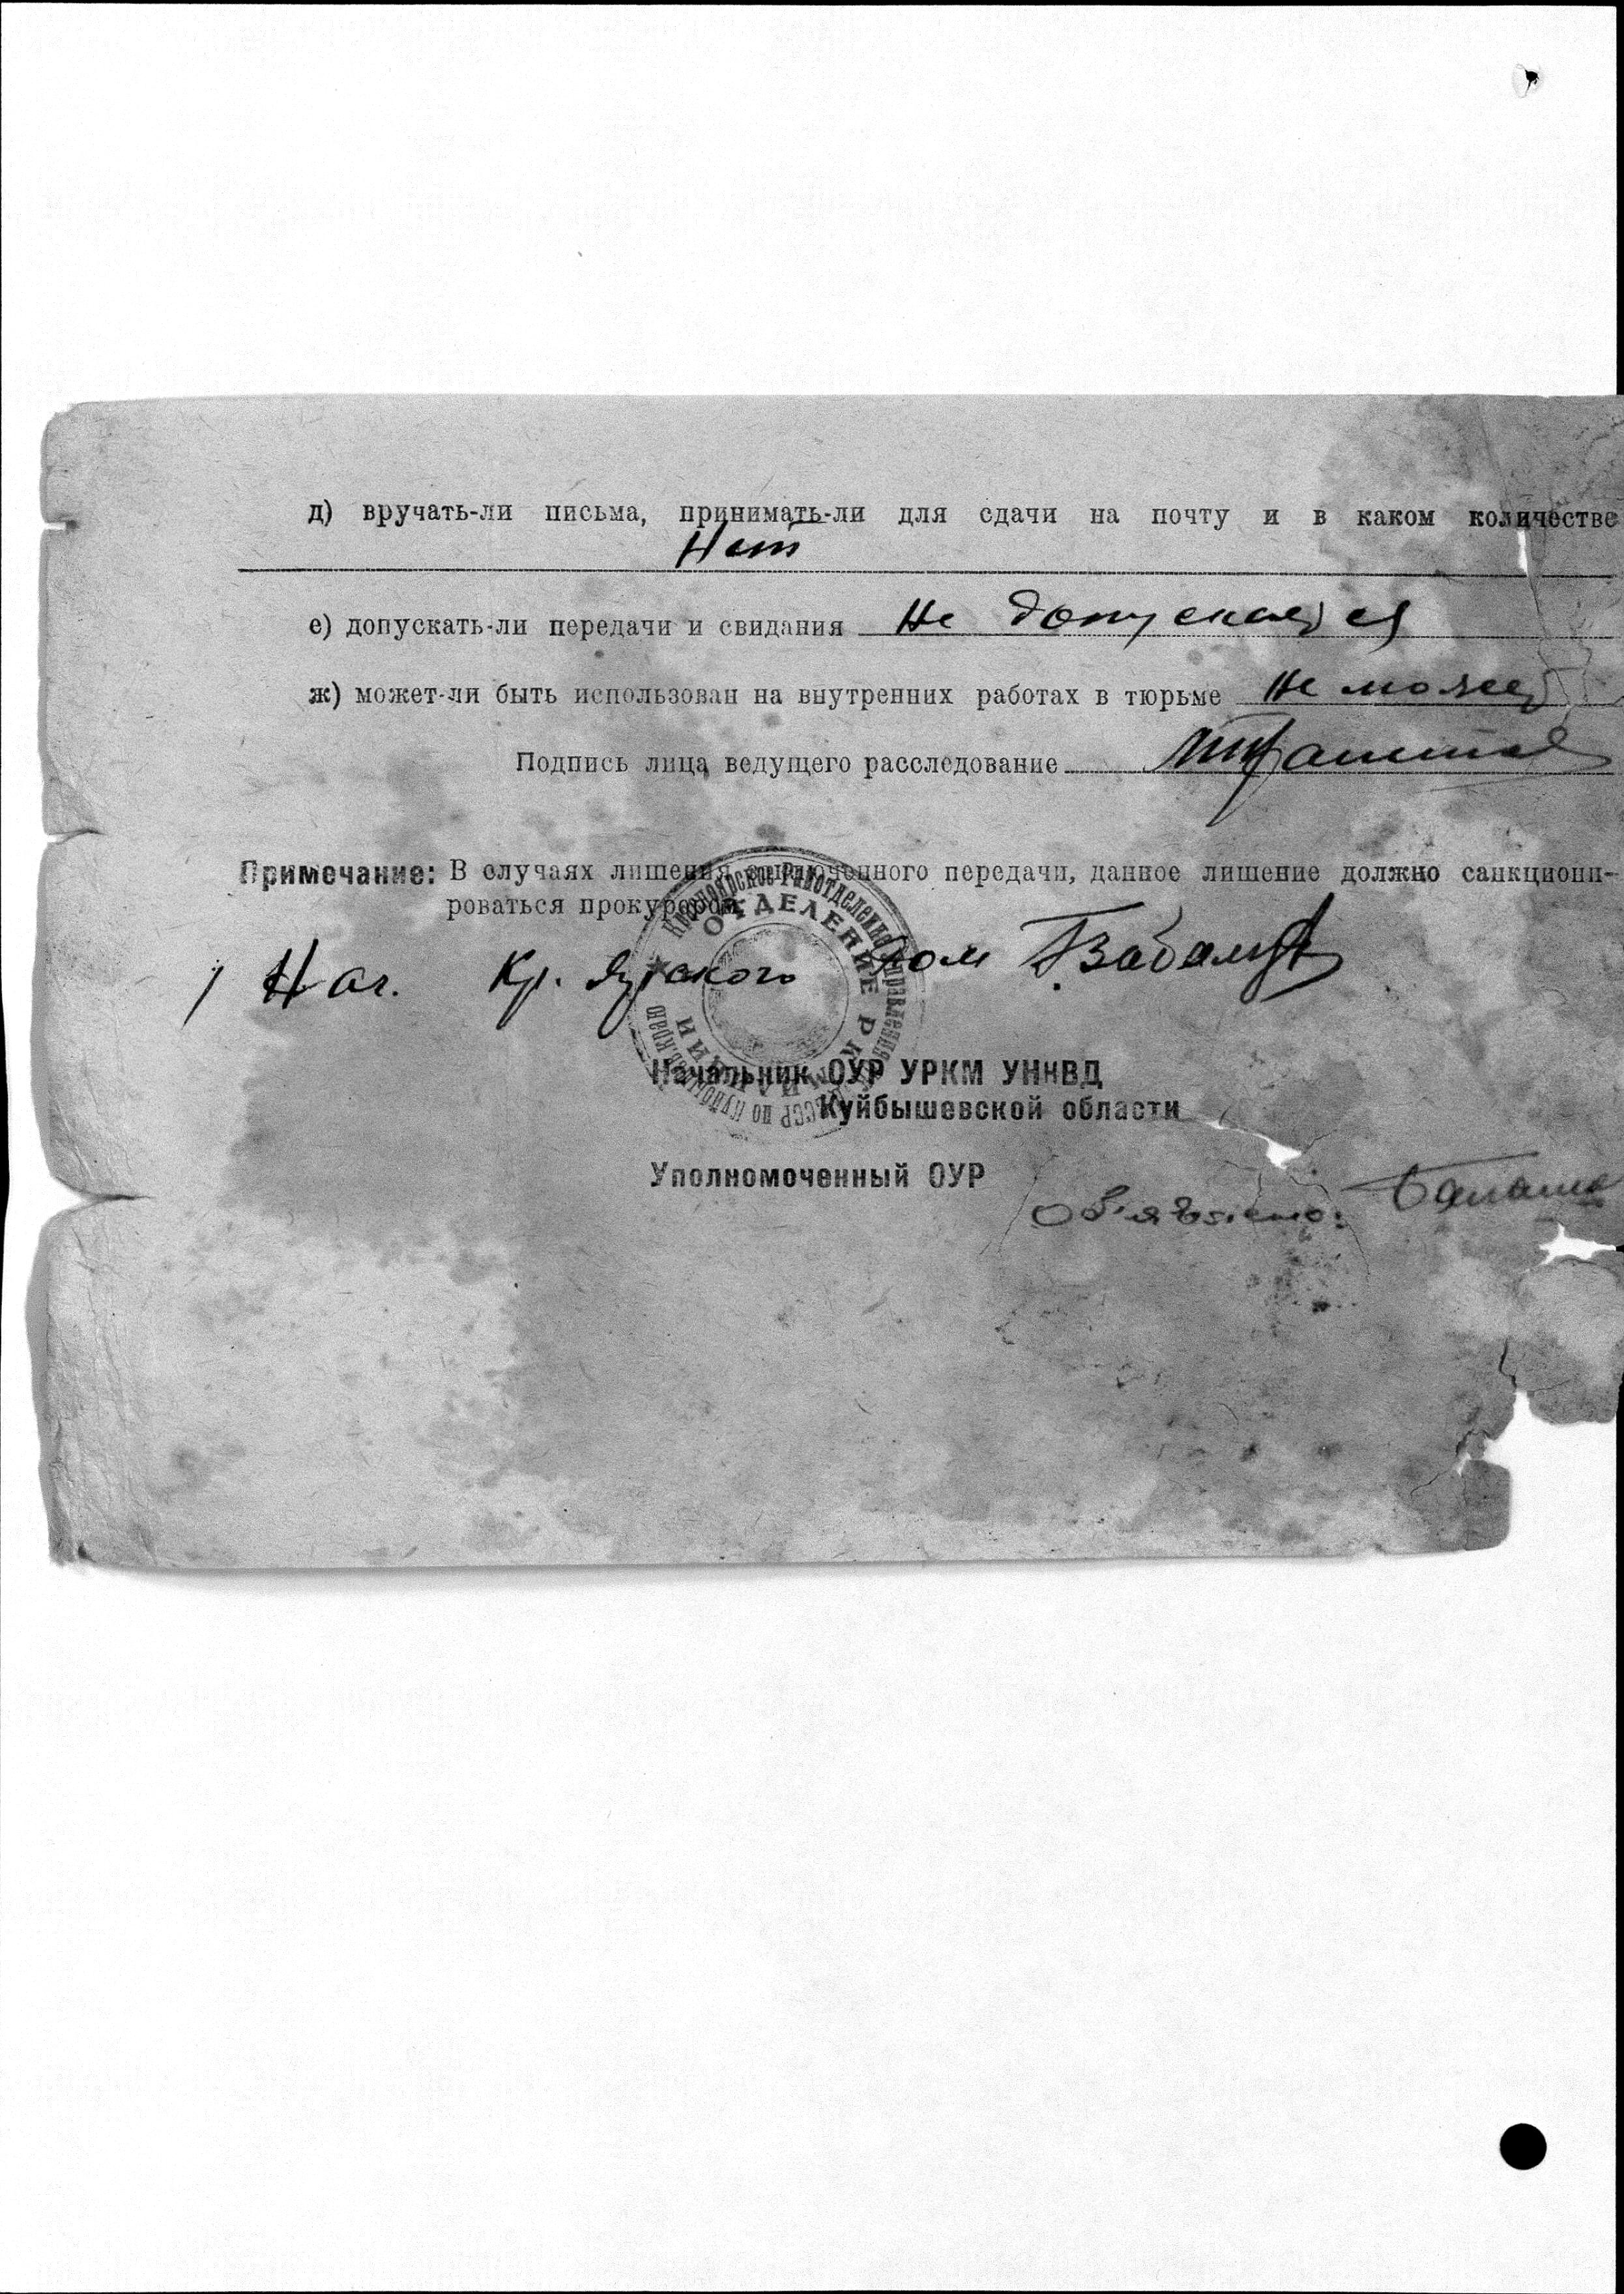 д) вручать-ли письма, принимать-ли для сдачи на почту и в каком количестве
Нет
е) допускать-ли передачи и свидания Не допускается
ж) может-ли быть использован на внутренних работах в тюрьме Не может
Подпись лица ведущего расследование
Примечание: В случаях лишения заключенного передачи, данное лишение должно санкциони-
роваться прокурором
Нач. Кр. Ярского
ОТДЕЛЕНИЕ РК МИЛИЦИИ
Начальник ОУР УРКМ УННВД
Куйбышевской области
Уполномоченный ОУР
Об'явлено: